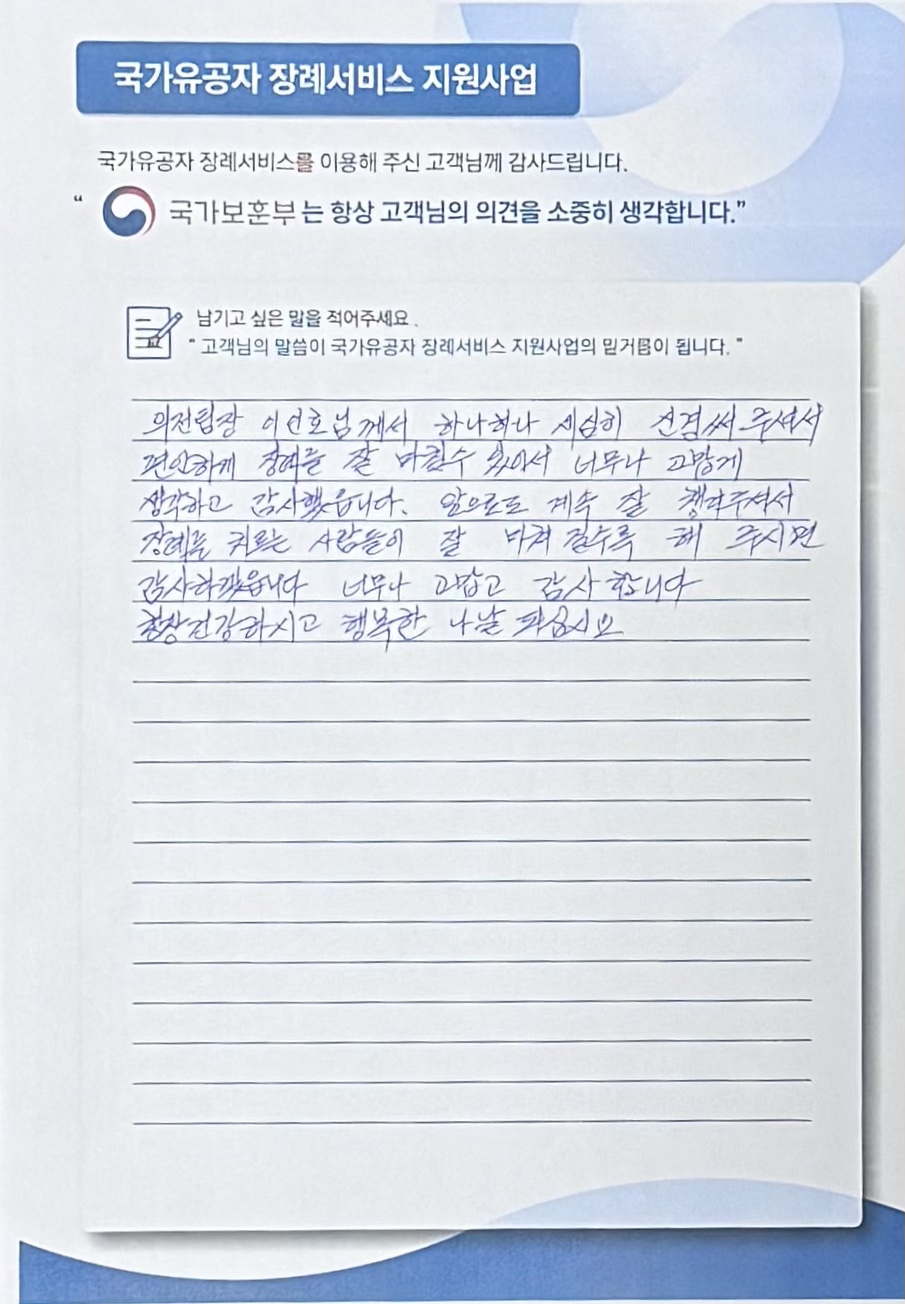 국가유공자 장례서비스 지원사업
국가유공자 장례서비스를 이용해 주신 고객님께 감사드립니다.
“ 국가보훈부는 항상 고객님의 의견을 소중히 생각합니다.”
남기고 싶은 말을 적어주세요 .
“ 고객님의 말씀이 국가유공자 장례서비스 지원사업의 밑거름이 됩니다. ”
의전팀장 이선호님께서 하나하나 세심히 신경써 주셔서
편안하게 장례를 잘 마칠수 있어서 너무나 고맙게
생각하고 감사했읍니다. 앞으로도 계속 잘 챙겨주셔서
장례를 치르는 사람들이 잘 마쳐 질수록 해 주시면
감사하겠읍니다 너무나 고맙고 감사 합니다
항상건강하시고 행복한 나날 되십시요